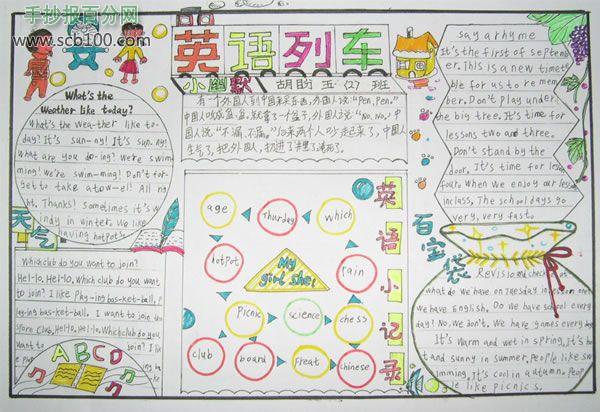 手抄报百分网
www.scb100.com
英语列车
小幽默
胡盼 五·(2) 班
What's the
Weather like today?
What's the Wea-ther like to-
day? It's sun-ny! It's sun-ny!
what are you do-ing? we're swim-
ming! we're swim-ming! Don't for-
get to take a tow-el! All ri
ght, Thanks! Sometimes it's w
indy in winter. We like
having hotpot.
天气
有一个外国人到中国来买东西,外国人说:"Pen,Pen."
中国人
外国人说:"No,No,"中
国人说:"不漏,不漏。"后来两个人吵走起来了,中国人
生气了,把外国人
say a rhyme
It's the first of septem
er. This is a new time
ble for us to re mem
ber. Don't play under
the big tree. It's time for
lessons two and three.
Don't stand by the
door. It's time for lesson
four. When we enjoy our lesson
inclass, The school days go
very, very fast.
百宝袋
Revision and check
what do we have on Tuesdays
we have English. Do we have school every
day! No, We don't. We have games every day.
It's Warm and wet in spring. It's ho
t and sunny in summer. People like sw
imming. It's cool in autumn. Peop
le like picnics.
Which club do you want to join?
Hel-lo, Hel-lo, Which club do you want
to join? I like Play-ing bas-ket-ball, P
lay-ing bas-ket-ball. I want to join the
Club. Hel-lo, Hel-lo. Which club do you
want to join? I li
ABCD
英语小记录
age
Thurday
which
hotpot
My
girl she!
rain
Picnic
science
chess
club
board
Freat
chinese